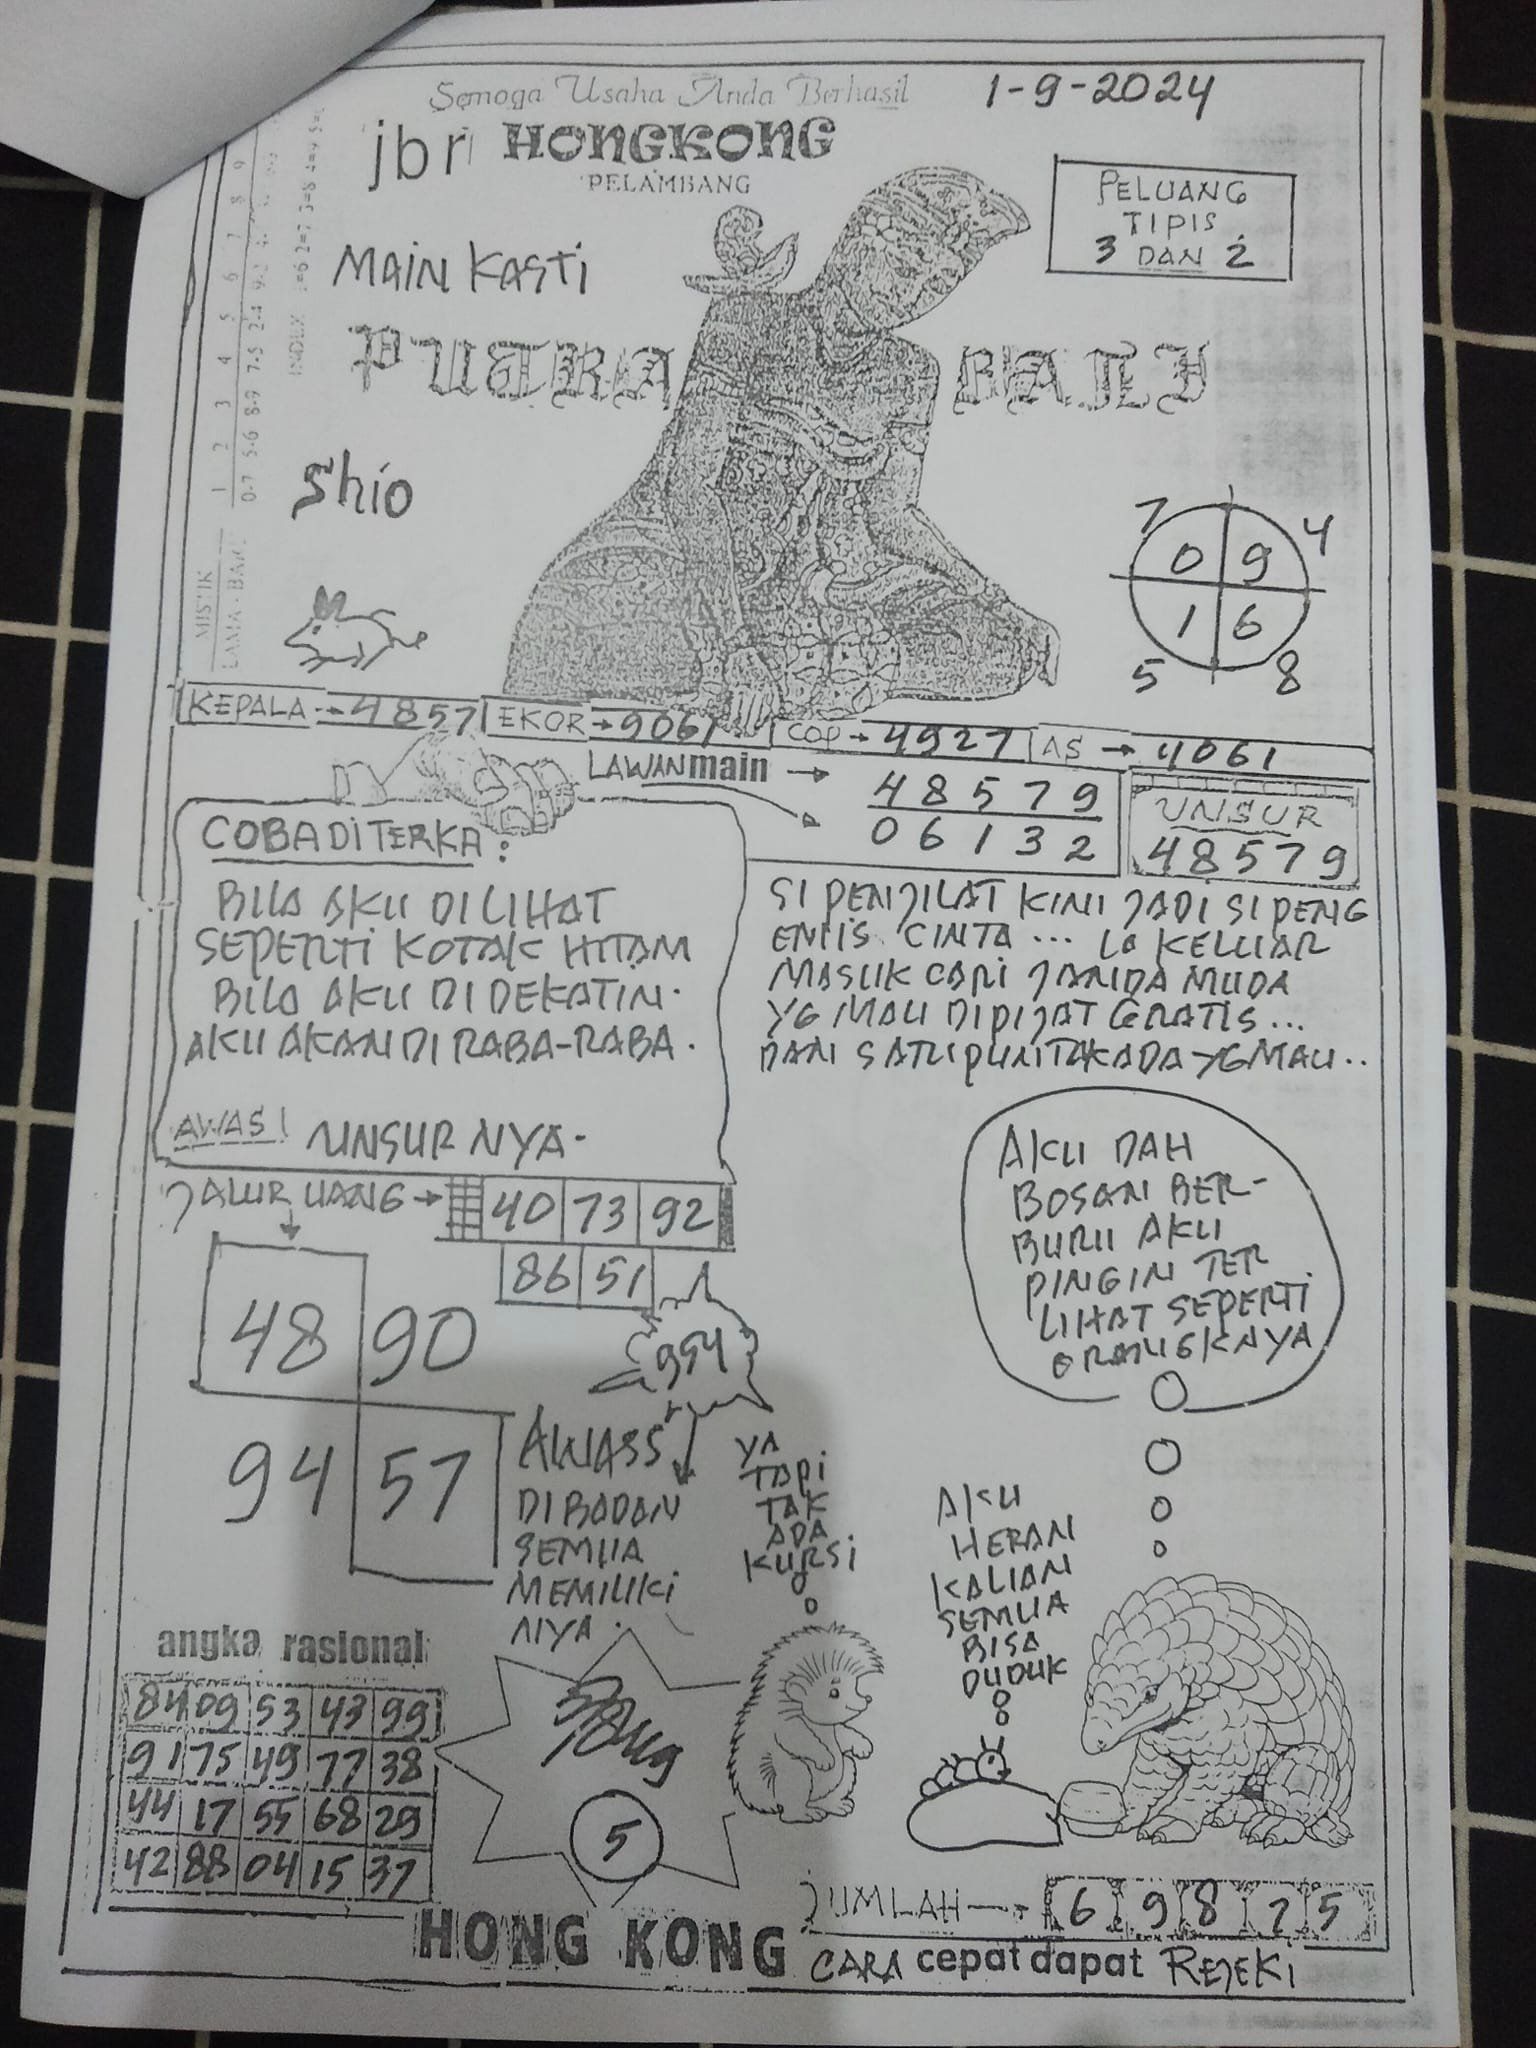 Semoga Usaha Anda Berhasil
1-9-2024
jbr HONGKONG
PELAMBANG
PELUANG
TIPIS
3 DAN 2
MAIN KASTI
PUTRA BALI
Shio
7 4
0 9
1 6
5 8
MISTIK
LAMA - BARU
1 2 3 4 5 6 7 8 9
0-7 5-6 8-9 7-5 2-4 9-2
INDEX
KEPALA → 4857 EKOR → 9061 COP → 4927 AS → 4061
LAWAN main → 48579
06132
UNSUR
48579
COBA DI TERKA :
BILA AKU DI LIHAT
SEPERTI KOTAK HITAM
BILA AKU DI DEKATIN.
AKU AKAN DI RABA-RABA.
AWAS! UNSUR NYA.
SI PENJILAT KINI JADI SI PENG
EMIS CINTA ... LO KELUAR
MASUK CARI JANDA MUDA
YG MAU DIPIJAT GRATIS...
DARI SATU PUN TAK ADA YG MAU..
JALUR UANG → 40 73 92
86 51
48 90
94 57
954
AWASS
DI BADAN
SEMUA
MEMILIKI
NYA.
AKU DAH
BOSAN BER-
BURU AKU
PINGIN TER
LIHAT SEPERTI
ORANG KNYA
YA
TAPI
TAK
ADA
KURSI
AKU
HERAN
KALIAN
SEMUA
BISA
DUDUK
angka rasional
84 09 53 43 99
91 75 49 77 38
44 17 55 68 29
42 88 04 15 37
5
JUMLAH → 6 9 8 2 5
HONG KONG CARA cepat dapat REJEKI